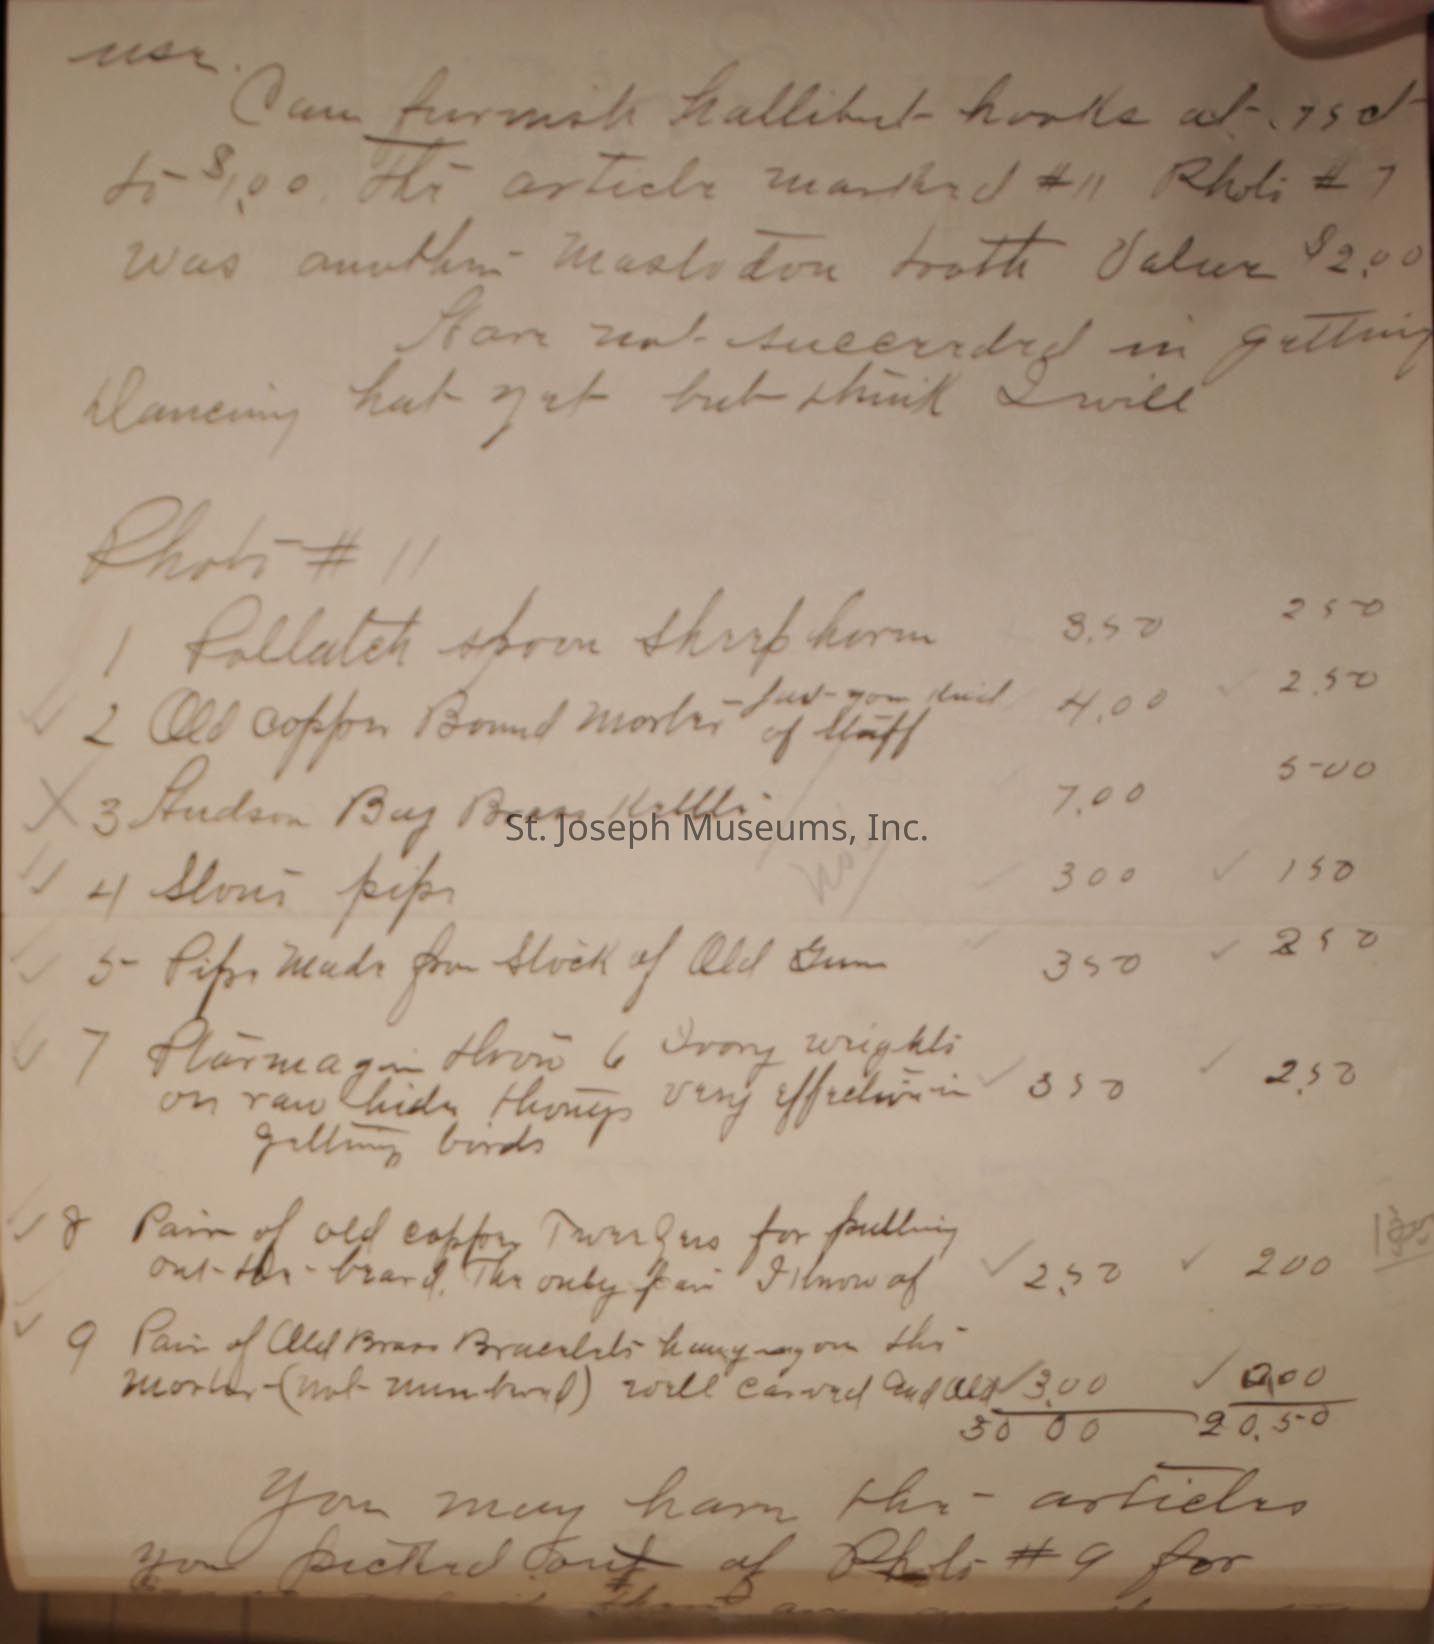 use.
Can furnish hallibut hooks at .75 ct
to $1.00. The article marked #11 Photo #7
was another Mastodon tooth Value $2.00
Have not succeeded in getting
Dancing hat yet but think I will
Photo #11
1 Pollatch spoon sheep horn 3.50 250
2 Old copper Bound Mortar - of Staff 4.00 2.50
X 3 Hudson Bay Brass Kettle 7.00 5-00
St. Joseph Museums, Inc.
4 Stone pipe 300 150
5- Pipe Made from Stock of Old Gun 350 250
7 Ptarmagin throw 6 Ivory weights
on raw hide thongs very effective in 350 2.50
getting birds
8 Pair of old copper Tweezers for pulling
out the beard. The only pair I know of 2.50 200
9 Pair of Old Brass Bracelets hanging on the
Mortar (not numbered) well carved and old 3.00 2.00
30 00 20.50
You may have the articles
you picked out of Photo #9 for